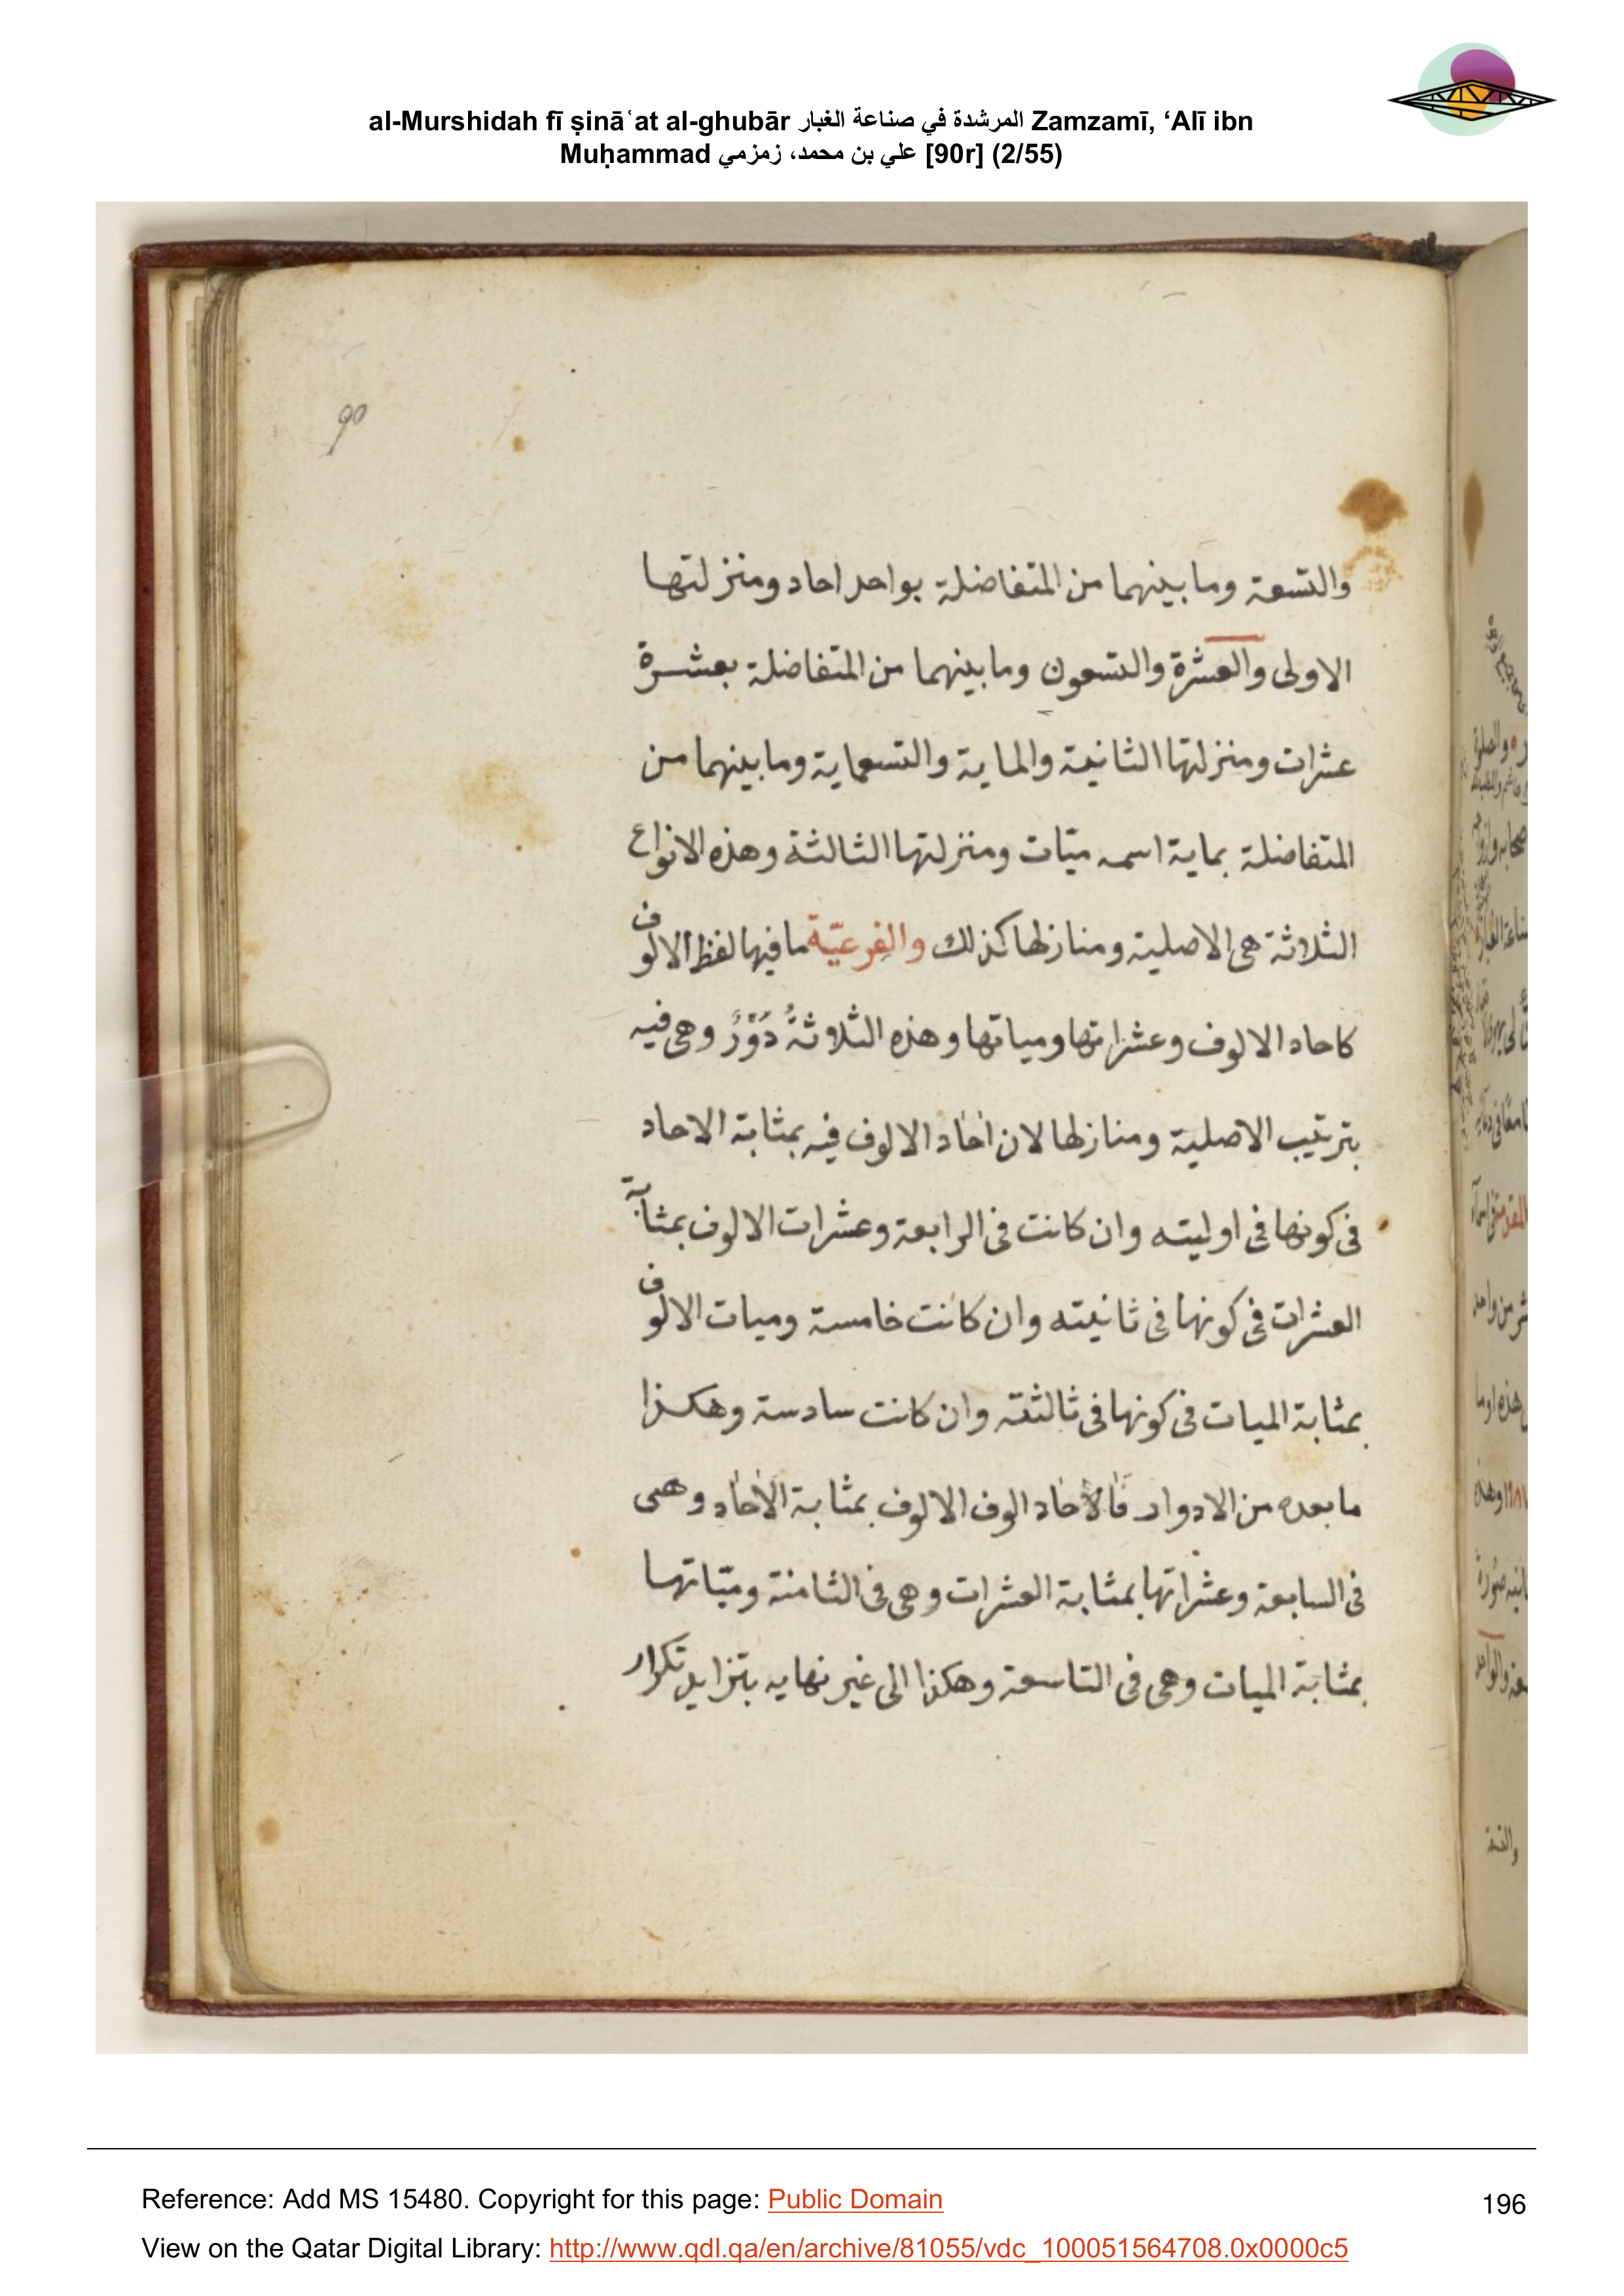 al-Murshidah fī ṣināʿat al-ghubār المرشدة في صناعة الغبار Zamzamī, ‘Alī ibn
Muḥammad علي بن محمد، زمزمي [90r] (2/55)
90
والتسعة وما بينهما من المتفاضلة بواحد احاد ومنزلتها
الاولى والعشرة والتسعون وما بينهما من المتفاضلة بعشرة
عشرات ومنزلتها الثانية والماية والتسعماية وما بينهما من
المتفاضلة بماية اسمه ميّات ومنزلتها الثالثة وهذه الانواع
الثلاثة هي الاصلية ومنازلها كذلك والفرعيّة ما فيها لفظ الالوف
كاحاد الالوف وعشراتها ومياتها وهذه الثلاثةُ دَوْرٌ وهي فيه
بترتيب الاصلية ومنازلها لان احاد الالوف فيه بمثابة الاحاد
في كونها في اوليته وان كانت في الرابعة وعشرات الالوف بمثابة
العشرات في كونها في ثانيته وان كانت خامسة وميات الالوف
بمثابة الميات في كونها في ثالثته وان كانت سادسة وهكذا
ما بعده من الادوار فالاحاد الوف الالوف بمثابة الاحاد وهى
في السابعة وعشراتها بمثابة العشرات وهي في الثامنة وميّاتها
بمثابة الميات وهي في التاسعة وهكذا الى غير نهايه بتزايد تكرار
Reference: Add MS 15480. Copyright for this page: Public Domain
196
View on the Qatar Digital Library: http://www.qdl.qa/en/archive/81055/vdc_100051564708.0x0000c5